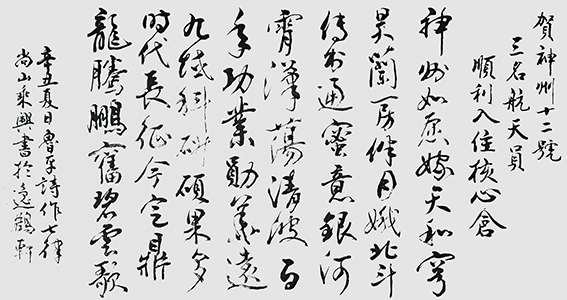 賀神州十二號
三名航天員
順利入住核心倉
神州如愿嫁天和穹
昊蘭房伴月娥北斗
傳書通蜜意銀河
霄漢蕩清波百
年功業勛遠
九域科研碩果多
時代長征今定鼎
龍騰鵬奮碧雲歌
辛丑夏日魯平詩作七律
尚山乘興書於遠鶴軒